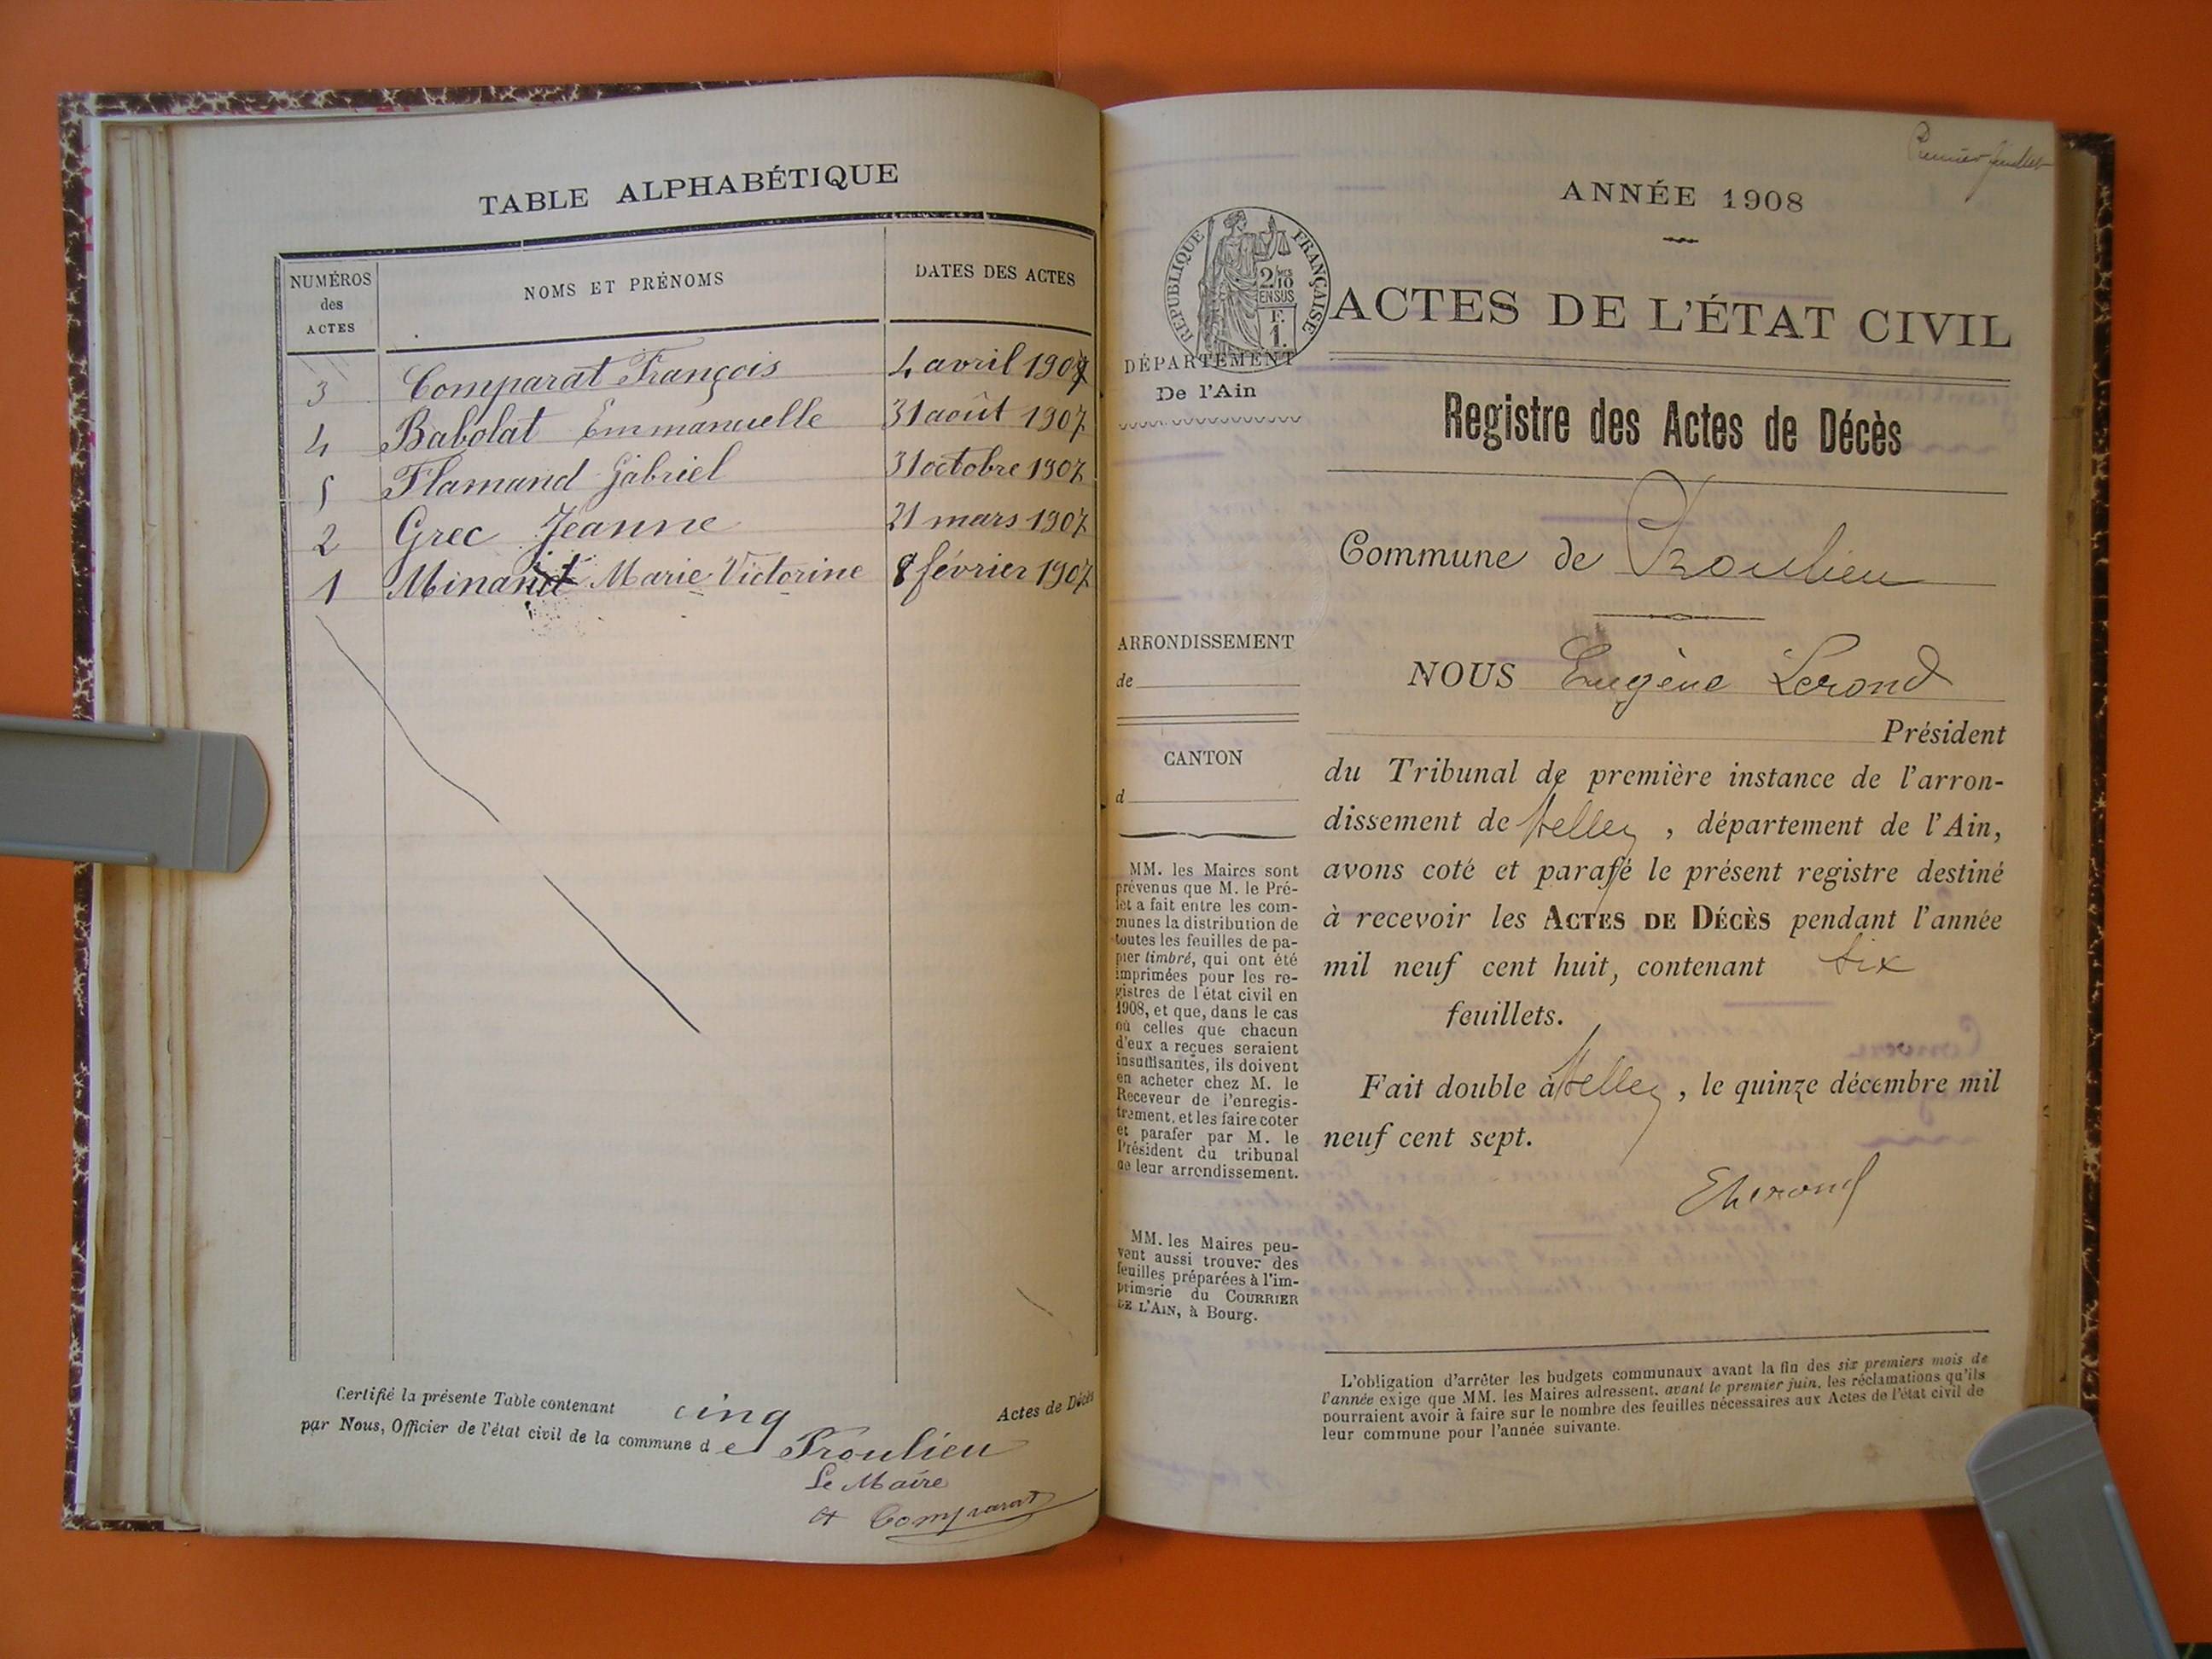 TABLE ALPHABÉTIQUE
NUMÉROS des ACTES NOMS ET PRÉNOMS DATES DES ACTES
3 Comparat François 4 avril 1907
4 Babolat Emmanuelle 31 août 1907
5 Flamand Gabriel 31 octobre 1907
2 Grec Jeanne 21 mars 1907
1 Minand Marie Victorine 8 février 1907
Certifié la présente Table contenant cinq Actes de Décès
par Nous, Officier de l'état civil de la commune de Proulieu
Le Maire
Comparat
Premier feuillet
ANNÉE 1908
RÉPUBLIQUE FRANÇAISE
2/10 mes
EN SUS
F.
1.
DÉPARTEMENT
De l'Ain
ARRONDISSEMENT
de
CANTON
d
MM. les Maires sont
prévenus que M. le Pré-
fet a fait entre les com-
munes la distribution de
toutes les feuilles de pa-
pier timbré, qui ont été
imprimées pour les re-
gistres de l'état civil en
1908, et que, dans le cas
où celles que chacun
d'eux a reçues seraient
insuffisantes, ils doivent
en acheter chez M. le
Receveur de l'enregis-
trement, et les faire coter
et parafer par M. le
Président du tribunal
de leur arrondissement.
MM. les Maires peu-
vent aussi trouver des
feuilles préparées à l'im-
primerie du COURRIER
DE L'AIN, à Bourg.
ACTES DE L'ÉTAT CIVIL
Registre des Actes de Décès
Commune de Proulieu
NOUS Eugène Lerond
Président
du Tribunal de première instance de l'arron-
dissement de Belley, département de l'Ain,
avons coté et parafé le présent registre destiné
à recevoir les ACTES DE DÉCÈS pendant l'année
mil neuf cent huit, contenant six
feuillets.
Fait double à Belley, le quinze décembre mil
neuf cent sept.
ELerond
L'obligation d'arrêter les budgets communaux avant la fin des six premiers mois de
l'année exige que MM. les Maires adressent, avant le premier juin, les réclamations qu'ils
pourraient avoir à faire sur le nombre des feuilles nécessaires aux Actes de l'état civil de
leur commune pour l'année suivante.